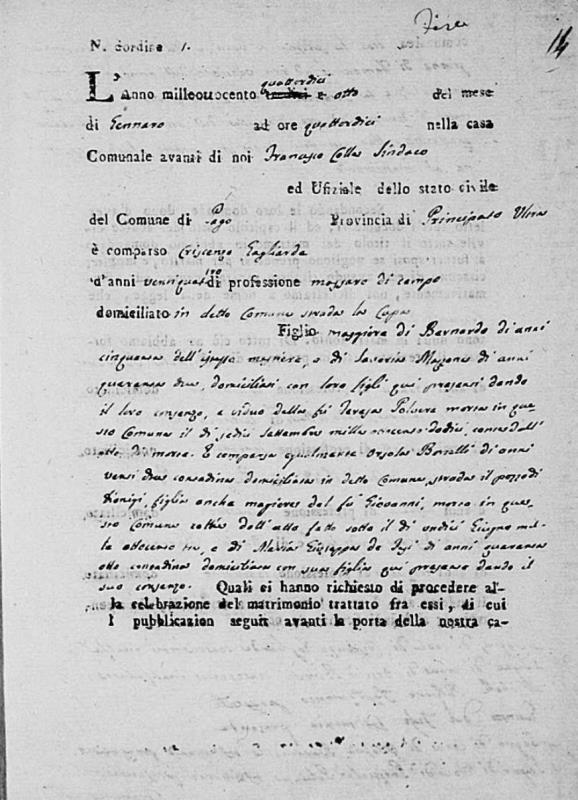 14
N. d'ordine 1.
L'Anno milleottocento quattordici e otto del mese
di Gennaro ad ore quattordici nella casa
Comunale avanti di noi Francesco Colla Sindaco
ed Ufiziale dello stato civile
del Comune di Pago Provincia di Principato Ultra
è comparso Crescenzo Gagliarda
d'anni ventiquattro di professione massaro di campo
domiciliato in detto Comune strada la Cupa
Figlio maggiore di Bernardo di anni
cinquanta dell'istesso mestiere, e di Saveria Mazzone di anni
quaranta due, domiciliati con loro figli qui presenti dando
il loro consenzo, e viduo della fù Teresa Polvere morta in que-
sto Comune il dì sedici Settembre mille ottocento dodici, come dall'
atto di morte. E comparsa egualmente Orsola Borrelli di anni
venti due contadina domiciliata in detto Comune, strada il pozzo di
figlia anche maggiore del fù Giovanni, morto in que-
sto Comune dall'atto fatto sotto il dì undici Giugno mil-
le ottocento tre, e di Maria Giuseppa de Iesi di anni quaranta
otto contadina domiciliata con sua figlia qui presente dando il
suo consenzo. Quali ci hanno richiesto di procedere al-
la celebrazione del matrimonio trattato fra essi, di cui
l pubblicazion seguit avanti la porta della nostra ca-